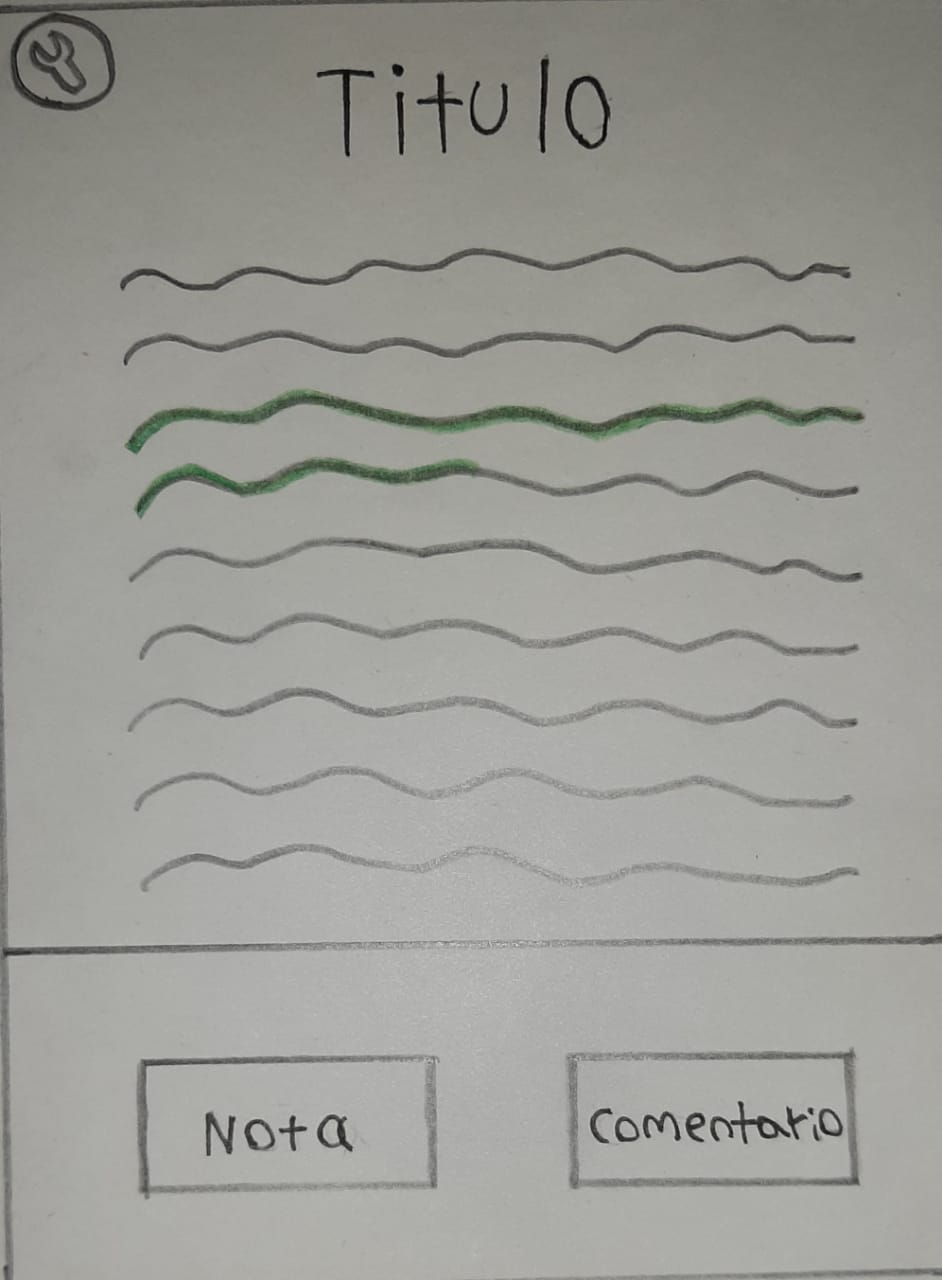 Titulo
Nota
Comentario